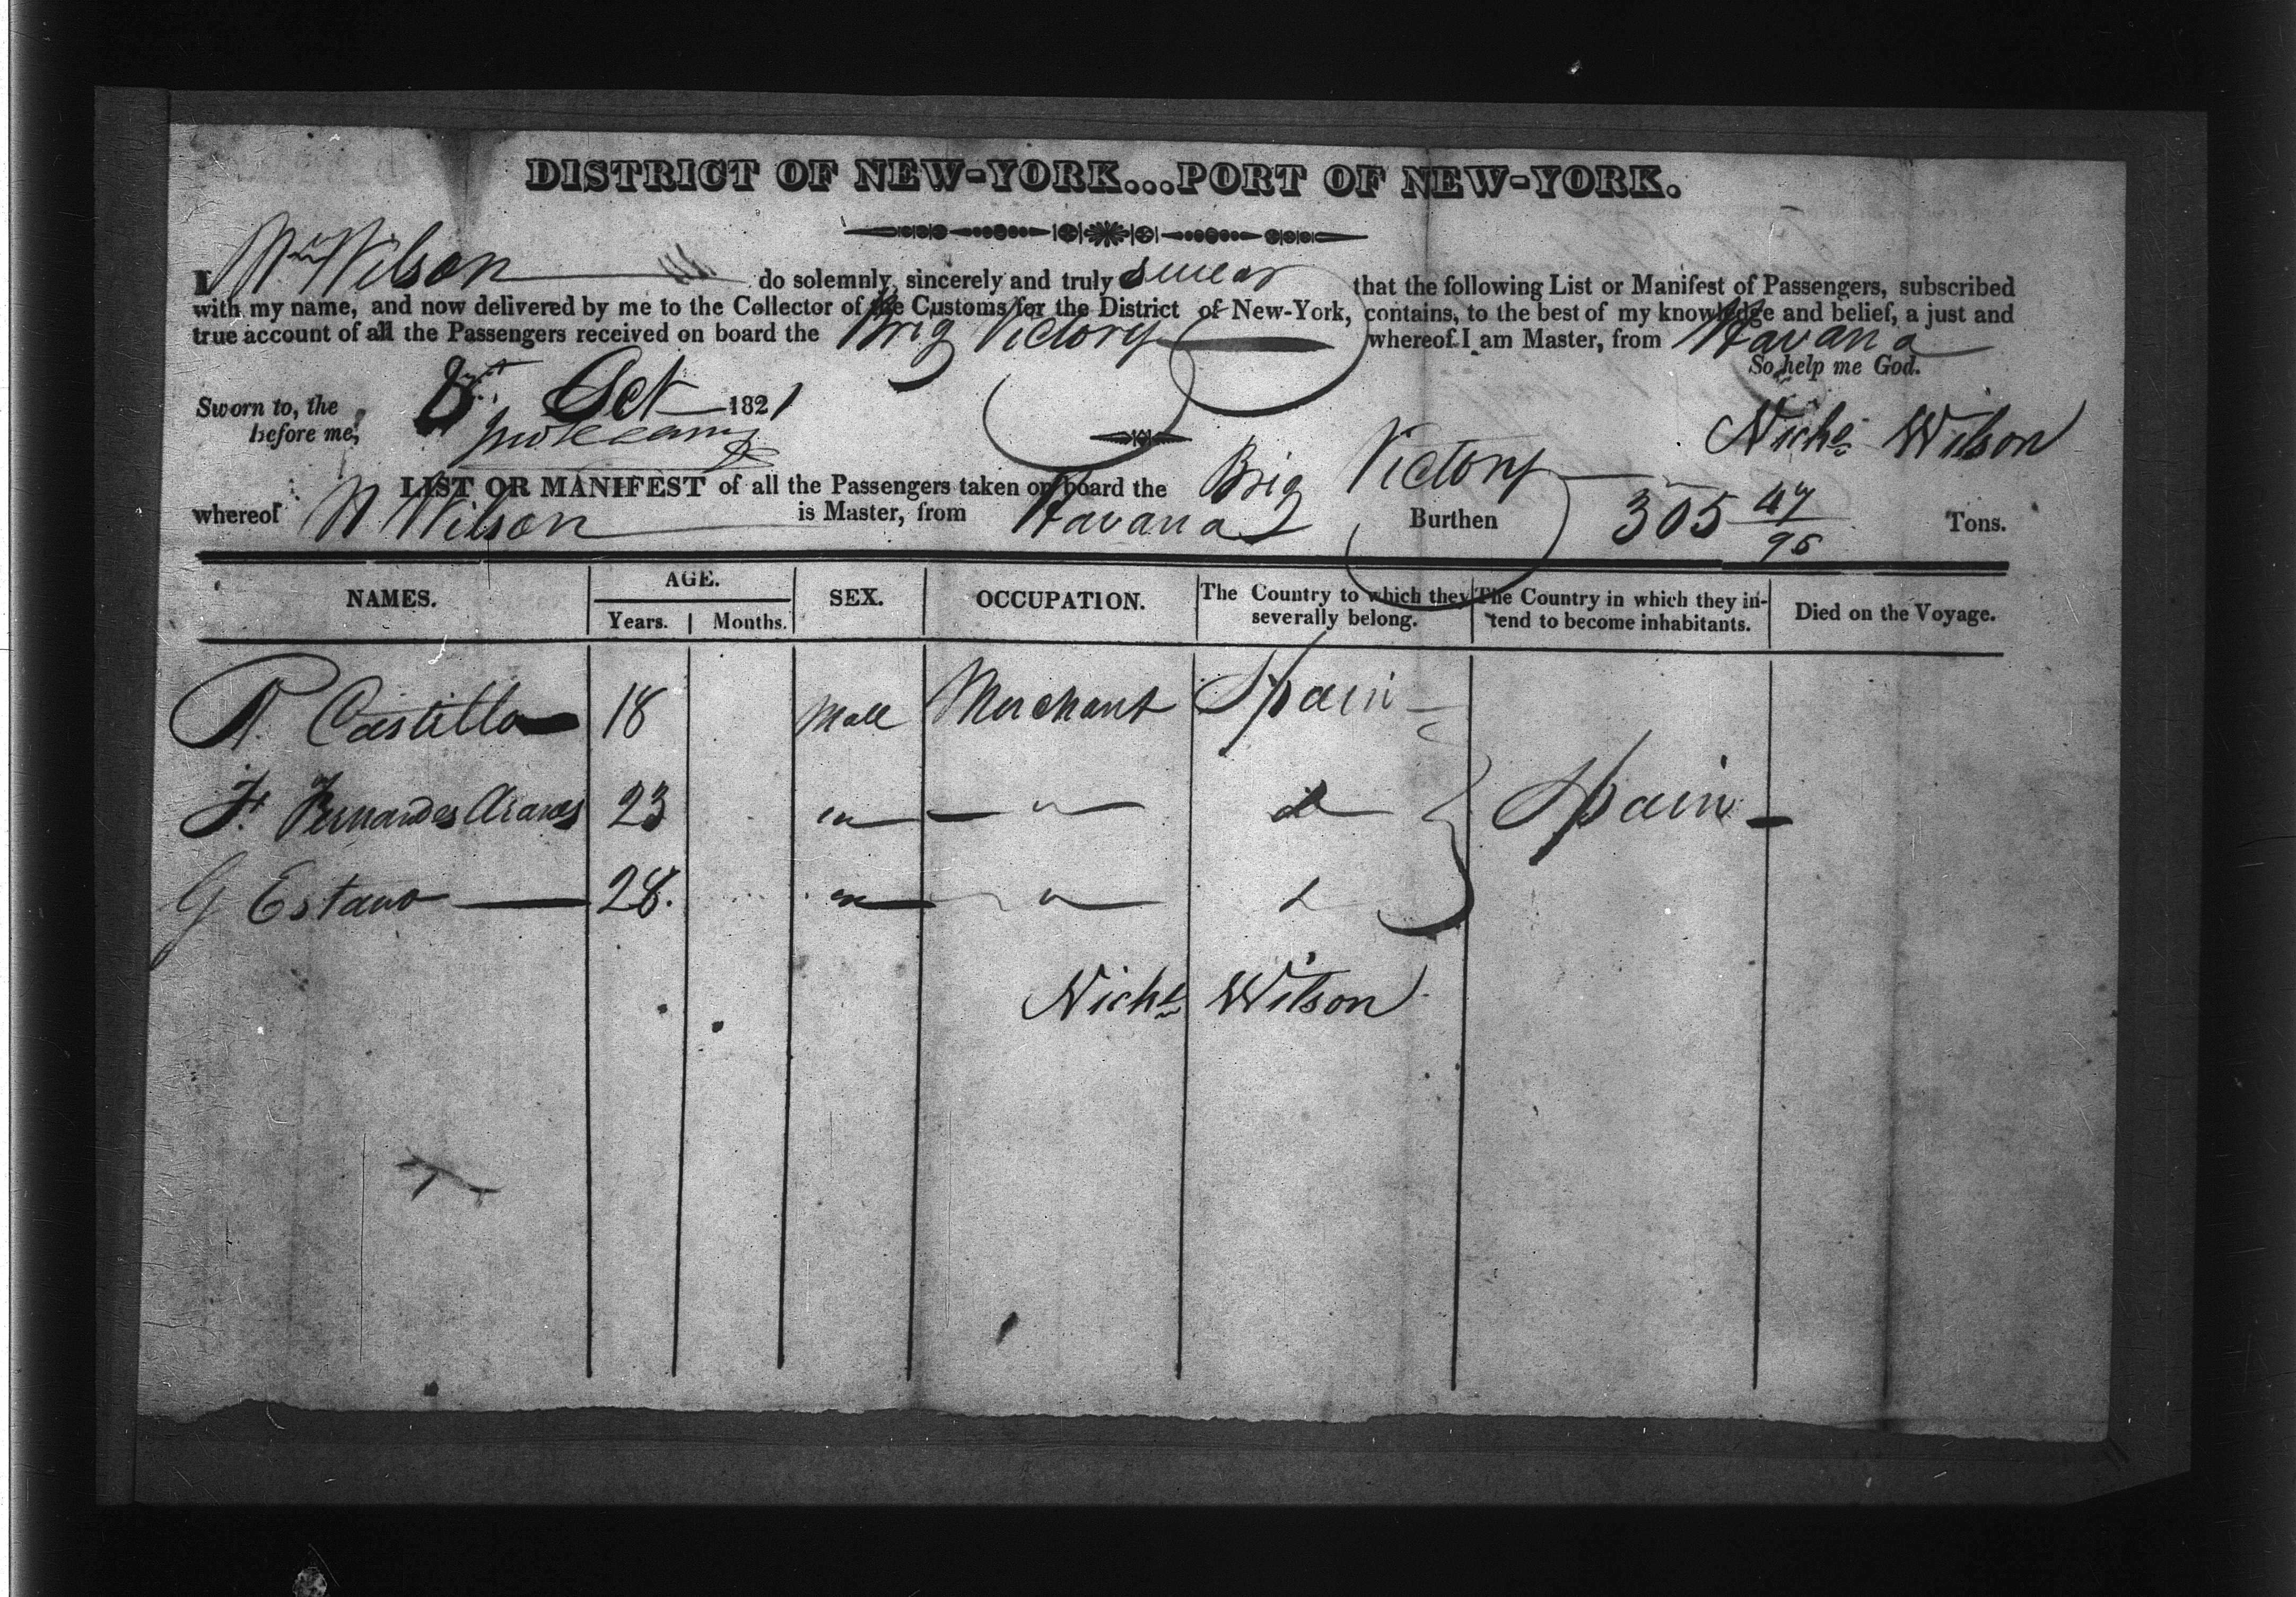 DISTRICT OF NEW-YORK...PORT OF NEW-YORK.
I Wilson do solemnly, sincerely and truly swear that the following List or Manifest of Passengers, subscribed
with my name, and now delivered by me to the Collector of the Customs for the District of New-York, contains, to the best of my knowledge and belief, a just and
true account of all the Passengers received on board the Brig Victory whereof I am Master, from Havana
So help me God.
Sworn to, the 8 Oct 1821
before me,
Nichs Wilson
LIST OR MANIFEST of all the Passengers taken on board the Brig Victory
whereof N Wilson is Master, from Havana Burthen 305 47/95 Tons.
NAMES. AGE. SEX. OCCUPATION. The Country to which they severally belong. The Country in which they intend to become inhabitants. Died on the Voyage.
Years. Months.
R. Castillo 18 Male Merchant Spain
F. Fernandes 23 " " do Spain
G Estavo 28. " " do
Nichs Wilson